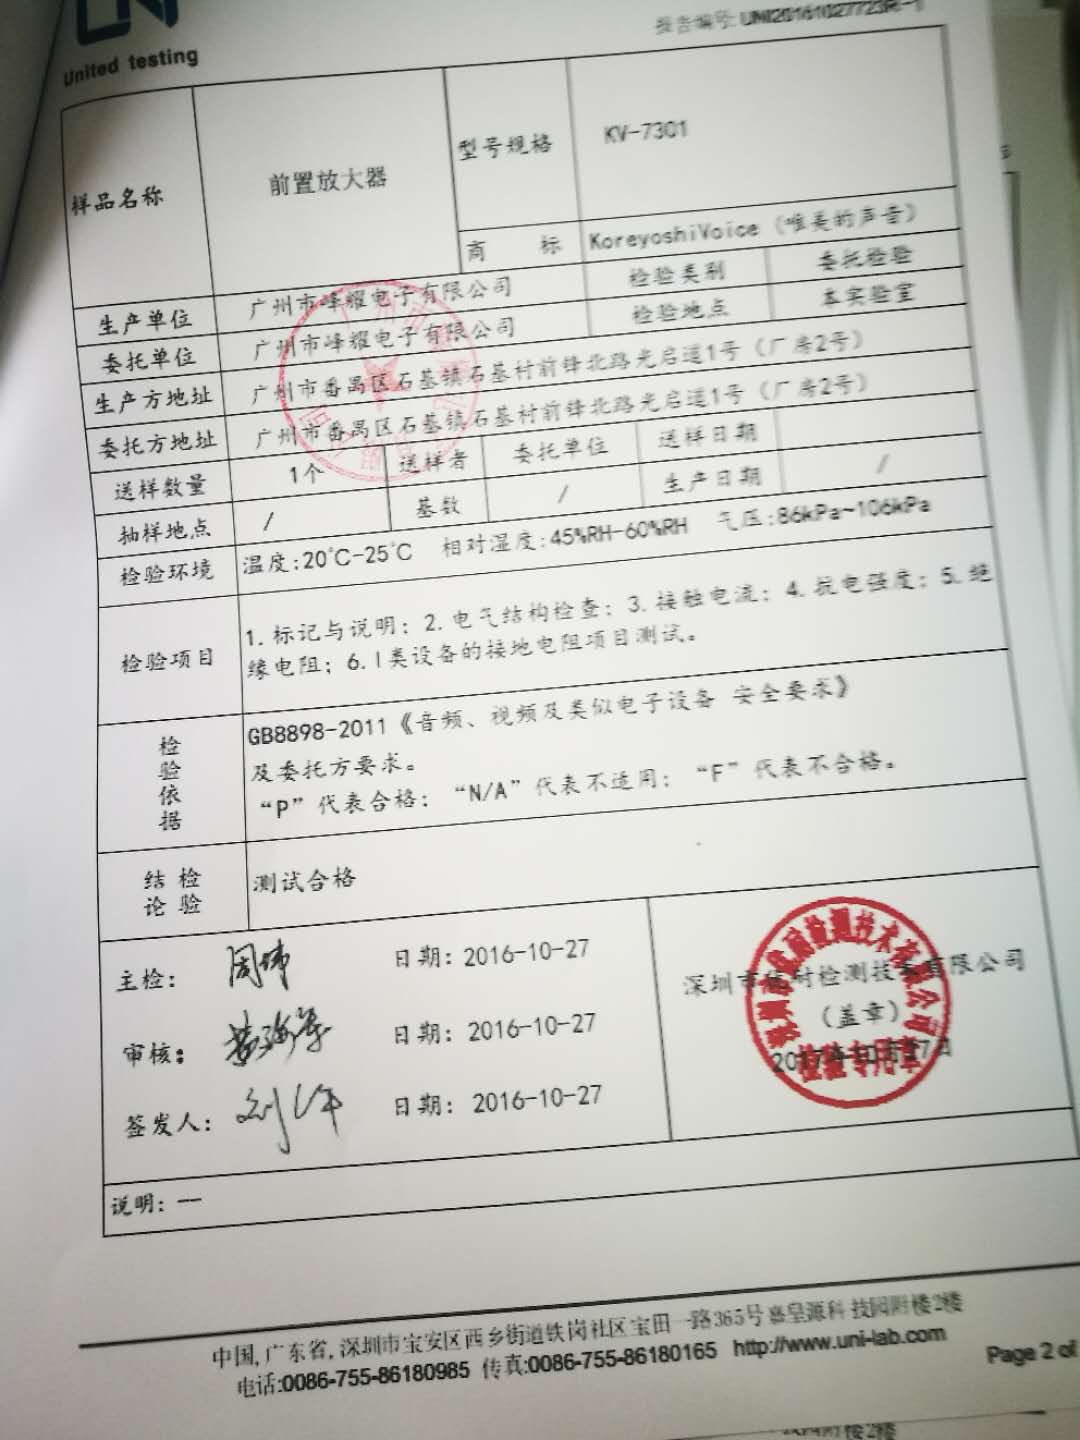 United testing
报告编号: UNI20161027723R-1
样品名称
前置放大器
型号规格
KV-7301
商 标
KoreyoshiVoice (唯美的声音)
生产单位
广州市峰耀电子有限公司
检验类别
委托检验
委托单位
广州市峰耀电子有限公司
检验地点
本实验室
生产方地址
广州市番禺区石基镇石基村前锋北路光启道1号(厂房2号)
委托方地址
广州市番禺区石基镇石基村前锋北路光启道1号(厂房2号)
送样数量
1个
送样者
委托单位
送样日期
抽样地点
/
基数
/
生产日期
/
检验环境
温度:20℃-25℃ 相对湿度:45%RH-60%RH 气压:86kPa~106kPa
检验项目
1.标记与说明; 2.电气结构检查; 3.接触电流; 4.抗电强度; 5.绝
缘电阻; 6.I类设备的接地电阻项目测试。
检验依据
GB8898-2011《音频、视频及类似电子设备 安全要求》
及委托方要求。
“P”代表合格; “N/A”代表不适用; “F”代表不合格。
结 检
论 验
测试合格
主检:
日期: 2016-10-27
审核:
日期: 2016-10-27
签发人:
日期: 2016-10-27
深圳市优耐检测技术有限公司
(盖章)
2017年10月27日
检验专用章
说明: --
中国,广东省,深圳市宝安区西乡街道铁岗社区宝田一路365号嘉皇源科技园附楼2楼
电话:0086-755-86180985 传真:0086-755-86180165 http://www.uni-lab.com
Page 2 of